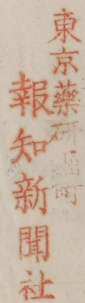 東京藥研堀町
報知新聞社